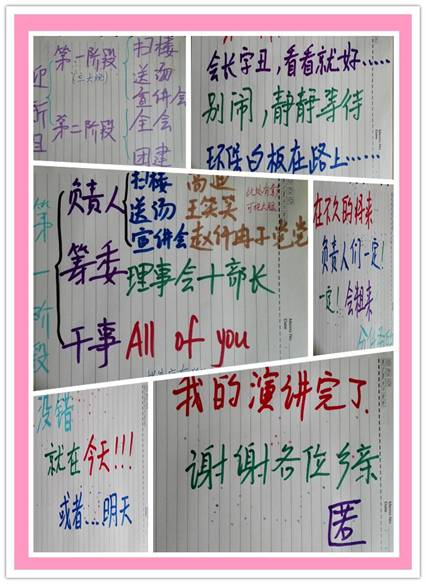 迎新且
第一阶段
第二阶段
扫楼
送汤
宣讲会
全会
团建
会长字丑，看看就好……
别闹，静静等待
环保白板在路上……
第一阶段
负责人
扫楼
送汤 王笑笑
宣讲会
筹委 理事会十部长
干事 All of you
在不久的将来
负责人们一定！
一定！会粗来
没错
就在今天!!!
或者...明天
我的演讲完了
谢谢各位乡亲
匿